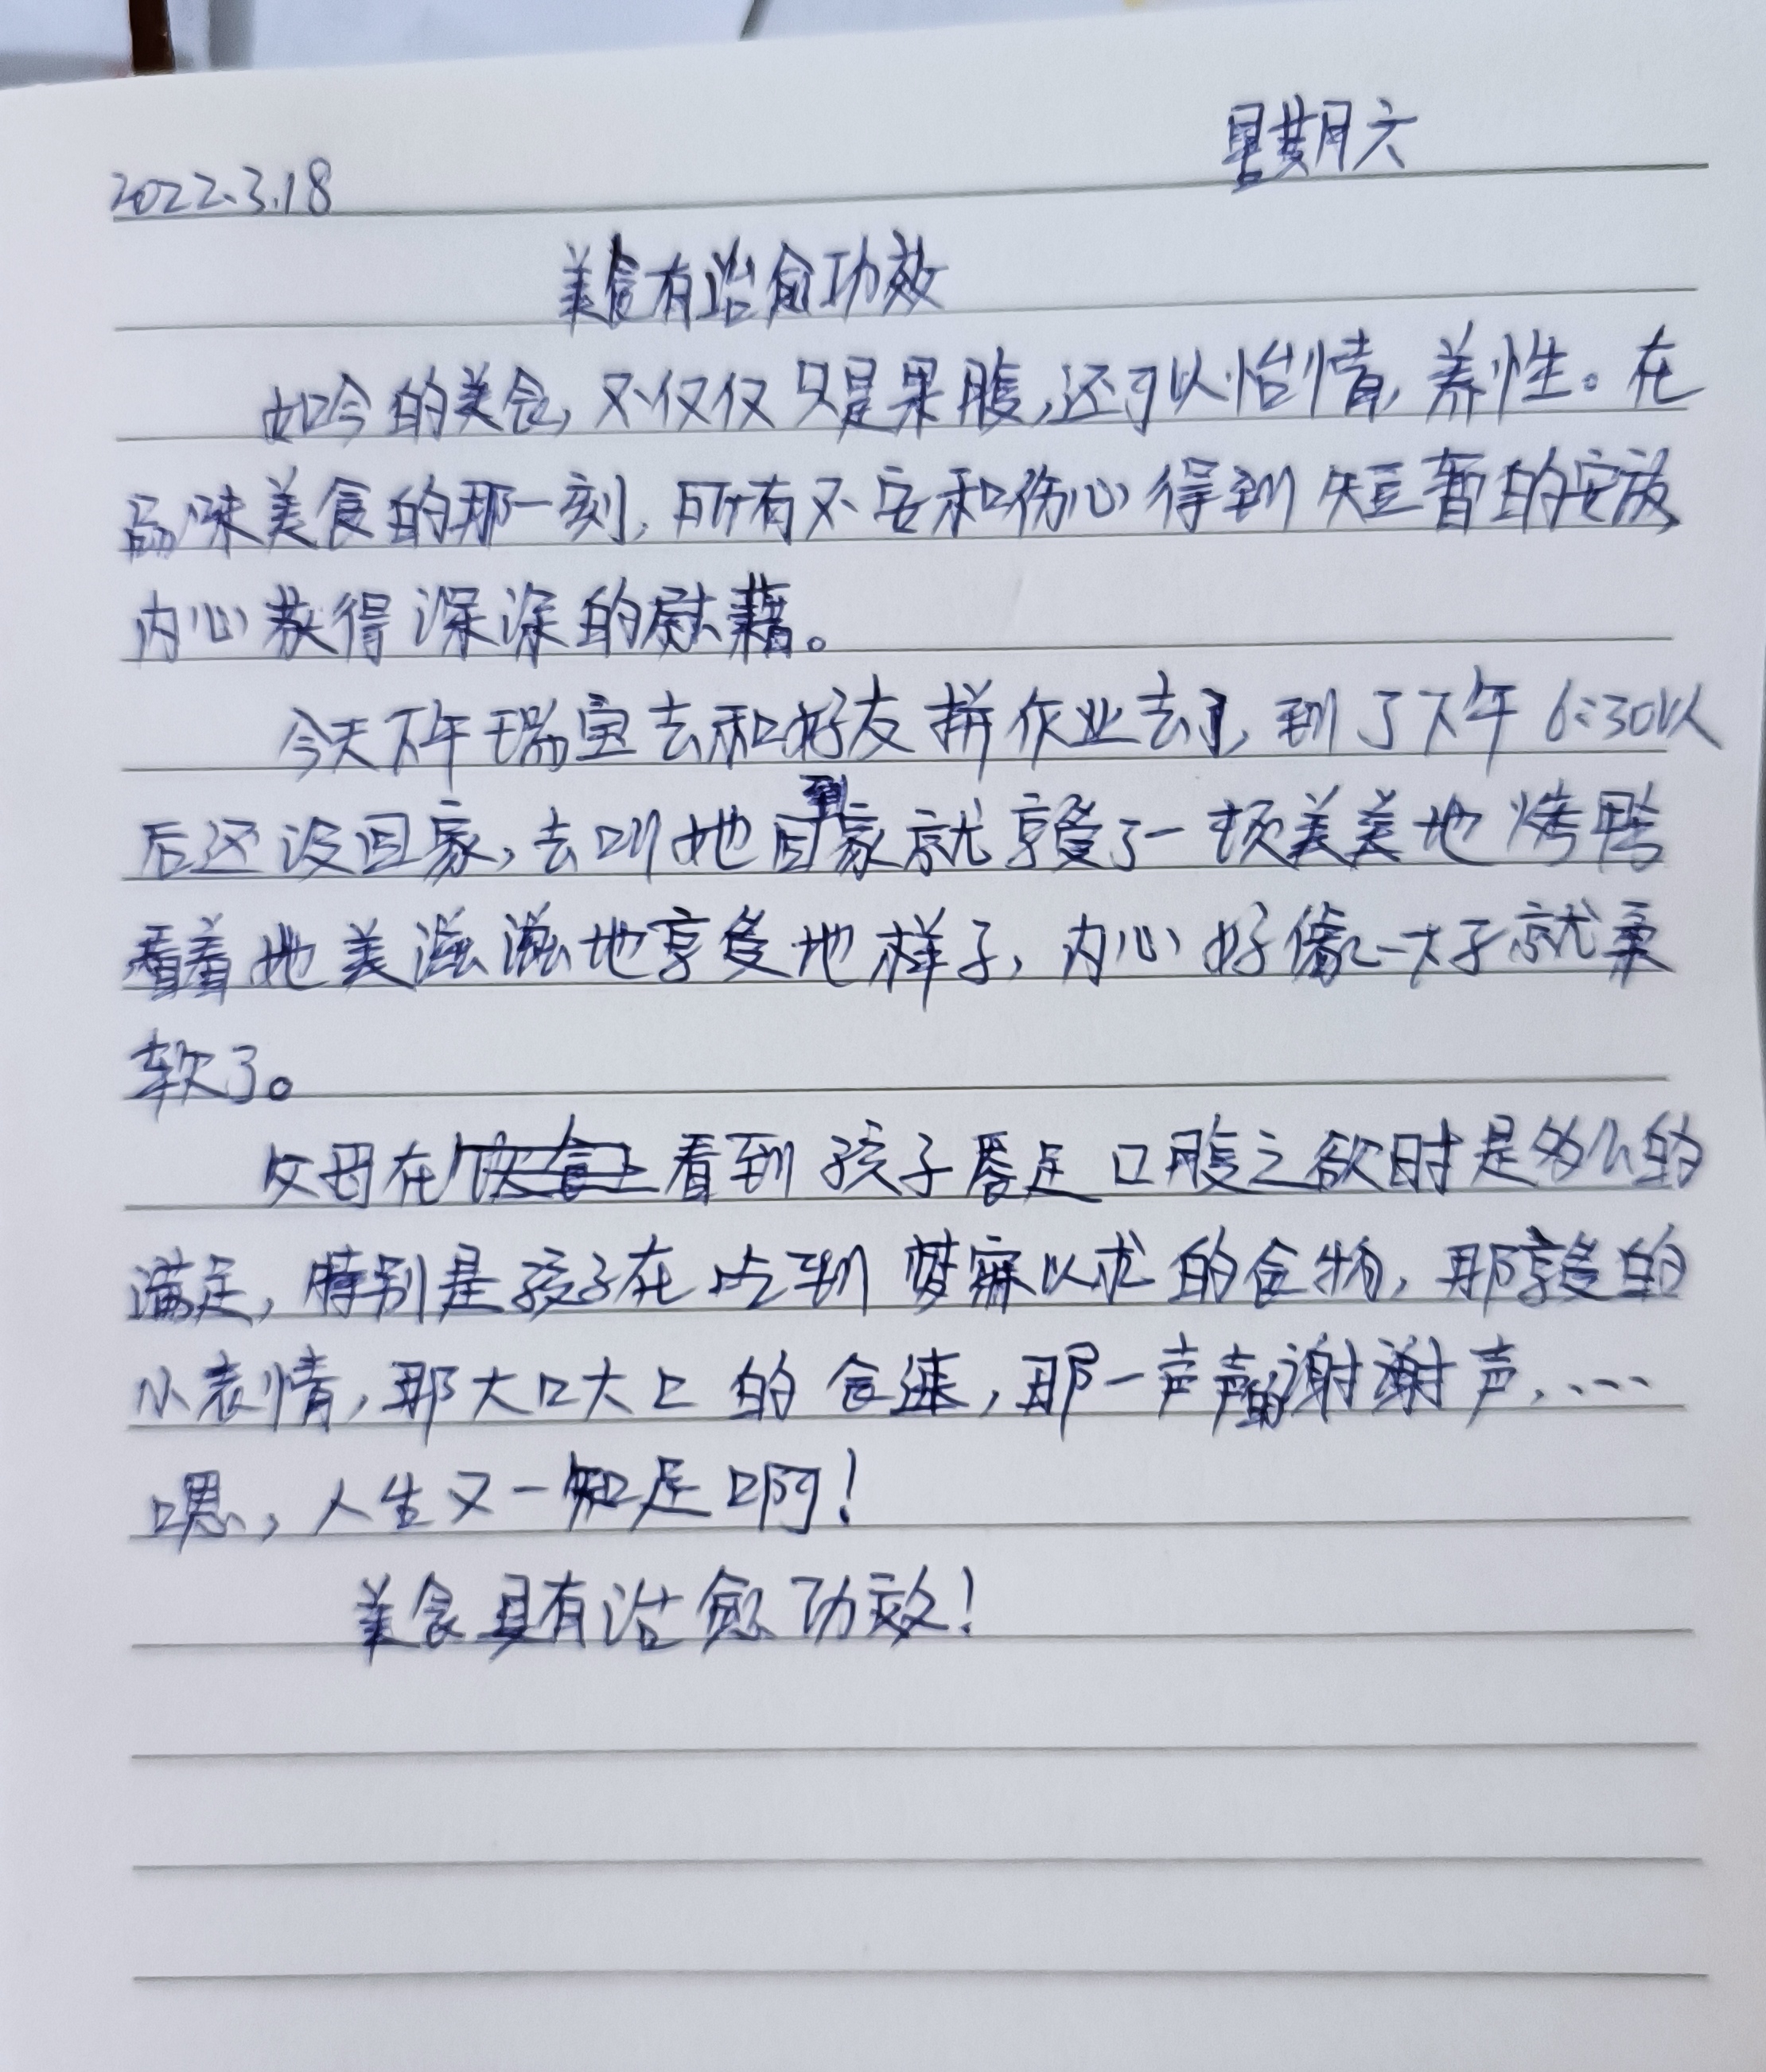 星期六
2022.3.18
美食有治愈功效
如今的美食,不仅仅只是果腹,还可以怡情,养性。在
品味美食的那一刻,所有不安和伤心得到短暂的安放,
内心获得深深的慰藉。
今天下午瑞宝去和好友拼作业去了,到了下午6:30以
后还没回家,去叫她回到家就享受了一顿美美地烤鸭
看着她美滋滋地享受地样子,内心好像一下子就柔
软了。
父母在看到孩子餍足口腹之欲时是多么的
满足,特别是孩子在吃到梦寐以求的食物,那享受的
小表情,那大口大口的食速,那一声声的谢谢声……
嗯,人生又一知足啊!
美食具有治愈功效!